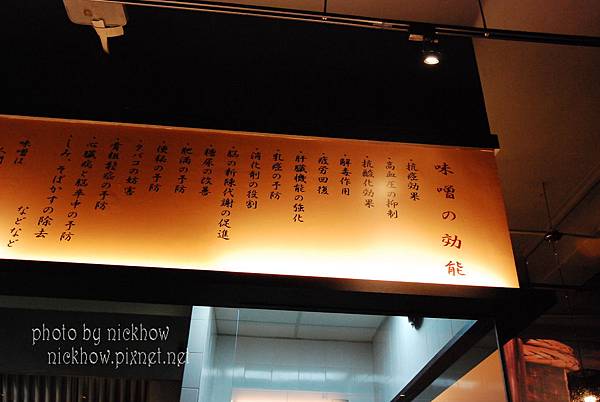 味噌の効能
・抗癌効果
・高血圧の抑制
・抗酸化効果
・解毒作用
・疲労回復
・肝臓機能の強化
・乳癌の予防
・消化剤の役割
・脳の新陳代謝の促進
・糖尿の改善
・肥満の予防
・便秘の予防
・タバコの妨害
・骨粗鬆症の予防
・心臓病と脳卒中の予防
・しみ、そばかすの除去
などなど
味噌は
photo by nickhow
nickhow.pixnet.net